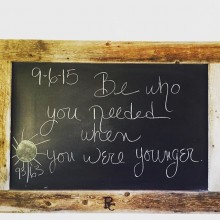 9-6-15 Be who
you needed
when
you were younger.